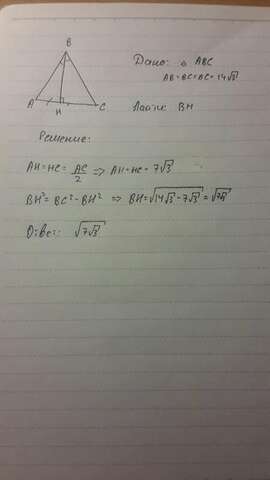 B
Дано: △ ABC
AB=BC=AC=14√3
A
H
C
Найти: BH
Решение:
AH=HC=AC/2 => AH=HC=7√3
BH²=BC²-BH² => BH=√14√3-7√3=√7√3
Ответ: √7√3